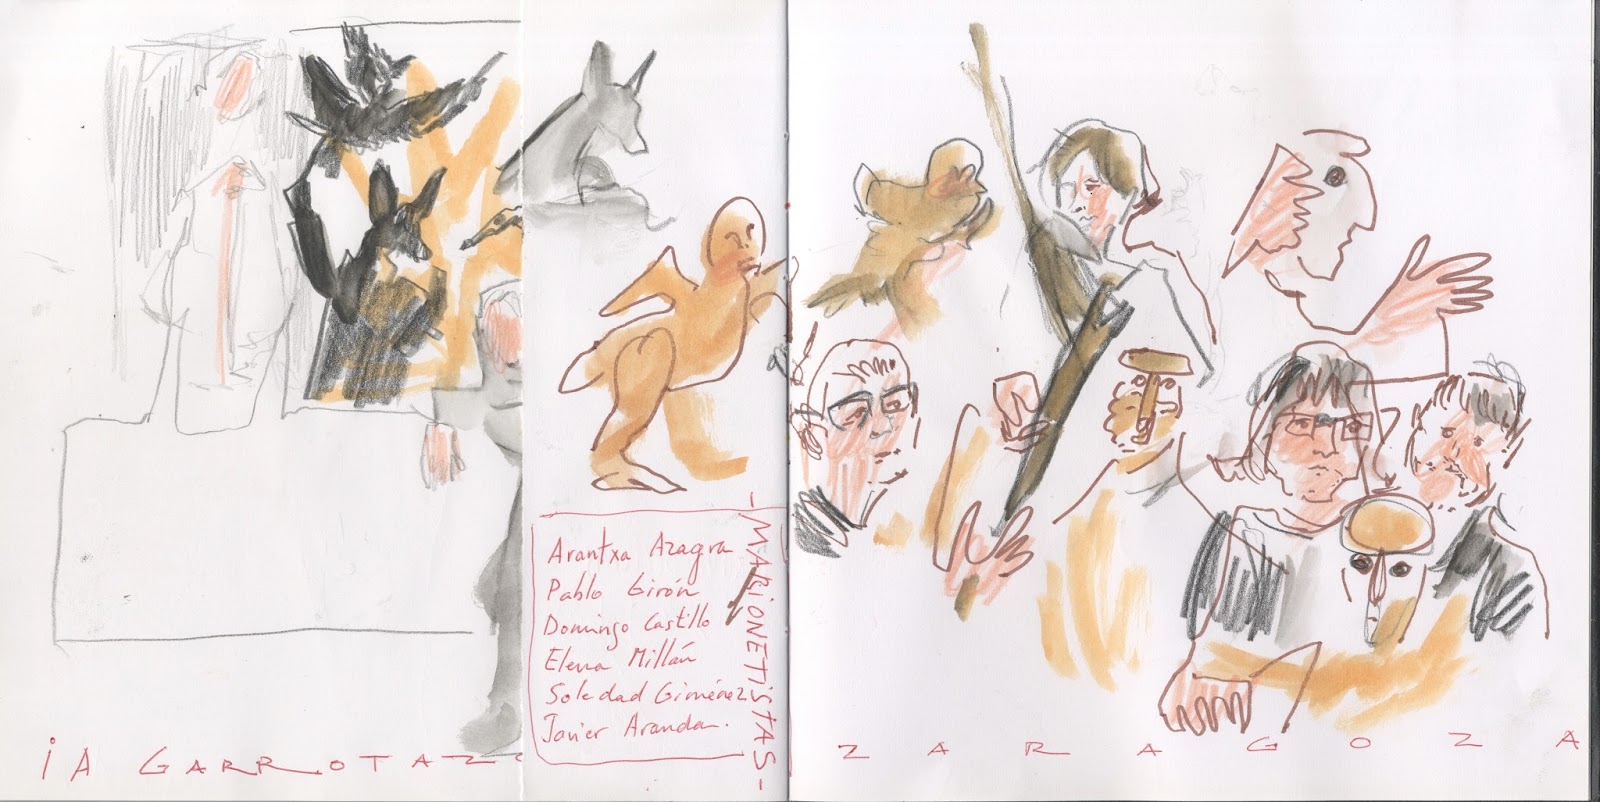 Arantxa Azagra
Pablo Girón
Domingo Castillo
Elena Millán
Soledad Giménez
Javier Aranda.
- MARIONETISTAS -
¡A GARROTAZO
ZARAGOZA